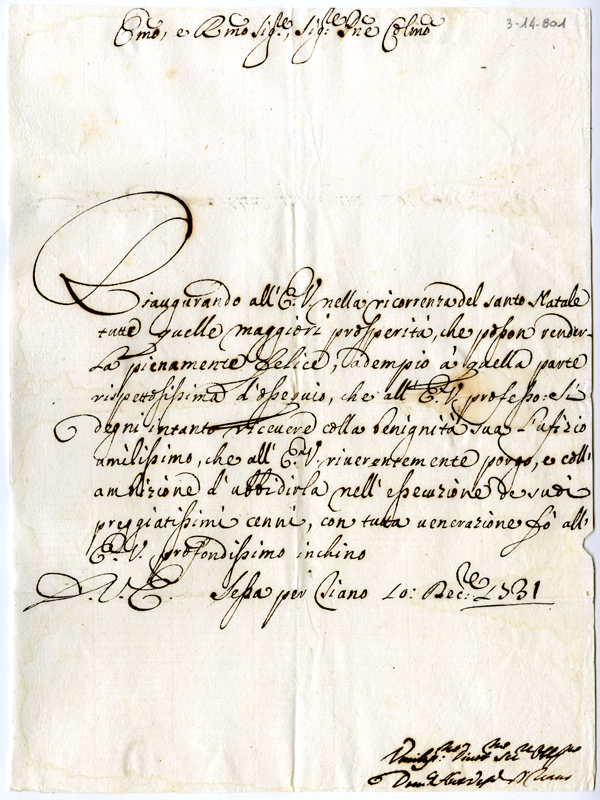 3-14-801
Emo, e Rmo Sigre, Sigr Pne Colmo
Riaugurando all' E.V. nella ricorrenza del santo Natale
tutte quelle maggiori prosperità, che posson render-
La pienamente felice, adempio à quella parte
rispettosissima d'ossequio, che all' E.V. professo: Si
degni intanto ricevere colla benignità sua l'ufizio
umilissimo, che all' E.V. riverentemente porgo, e coll'
ambizione d'ubbidirla nell' essecuzione de suoi
preggiatissimi cenni, con tutta venerazione fò all'
E.V. profondissimo inchino
D.V.E. Sessa per Ciano 10: Dec.re 1731